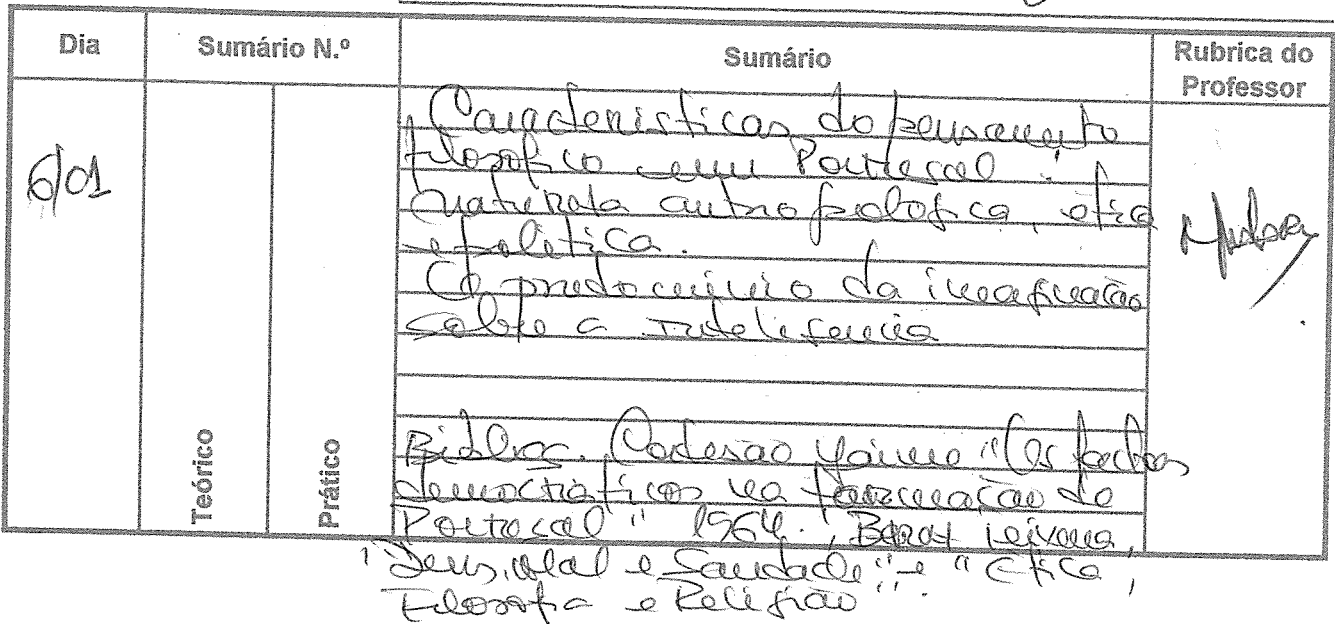 Dia
Sumário N.º
Sumário
Rubrica do
Professor
6/01
Caracteristicas do pensamento
filosofico em Portugal:
natureza antropologica, etica
e politica.
O predominio da imaginação
sobre a inteligencia
Teórico
Prático
Bibliog. Cortesao Jaime "Os factores
democraticos na formação de
Portugal" 1964.
"Deus, Mal e Saudade" e "Etica,
Filosofia e Religião